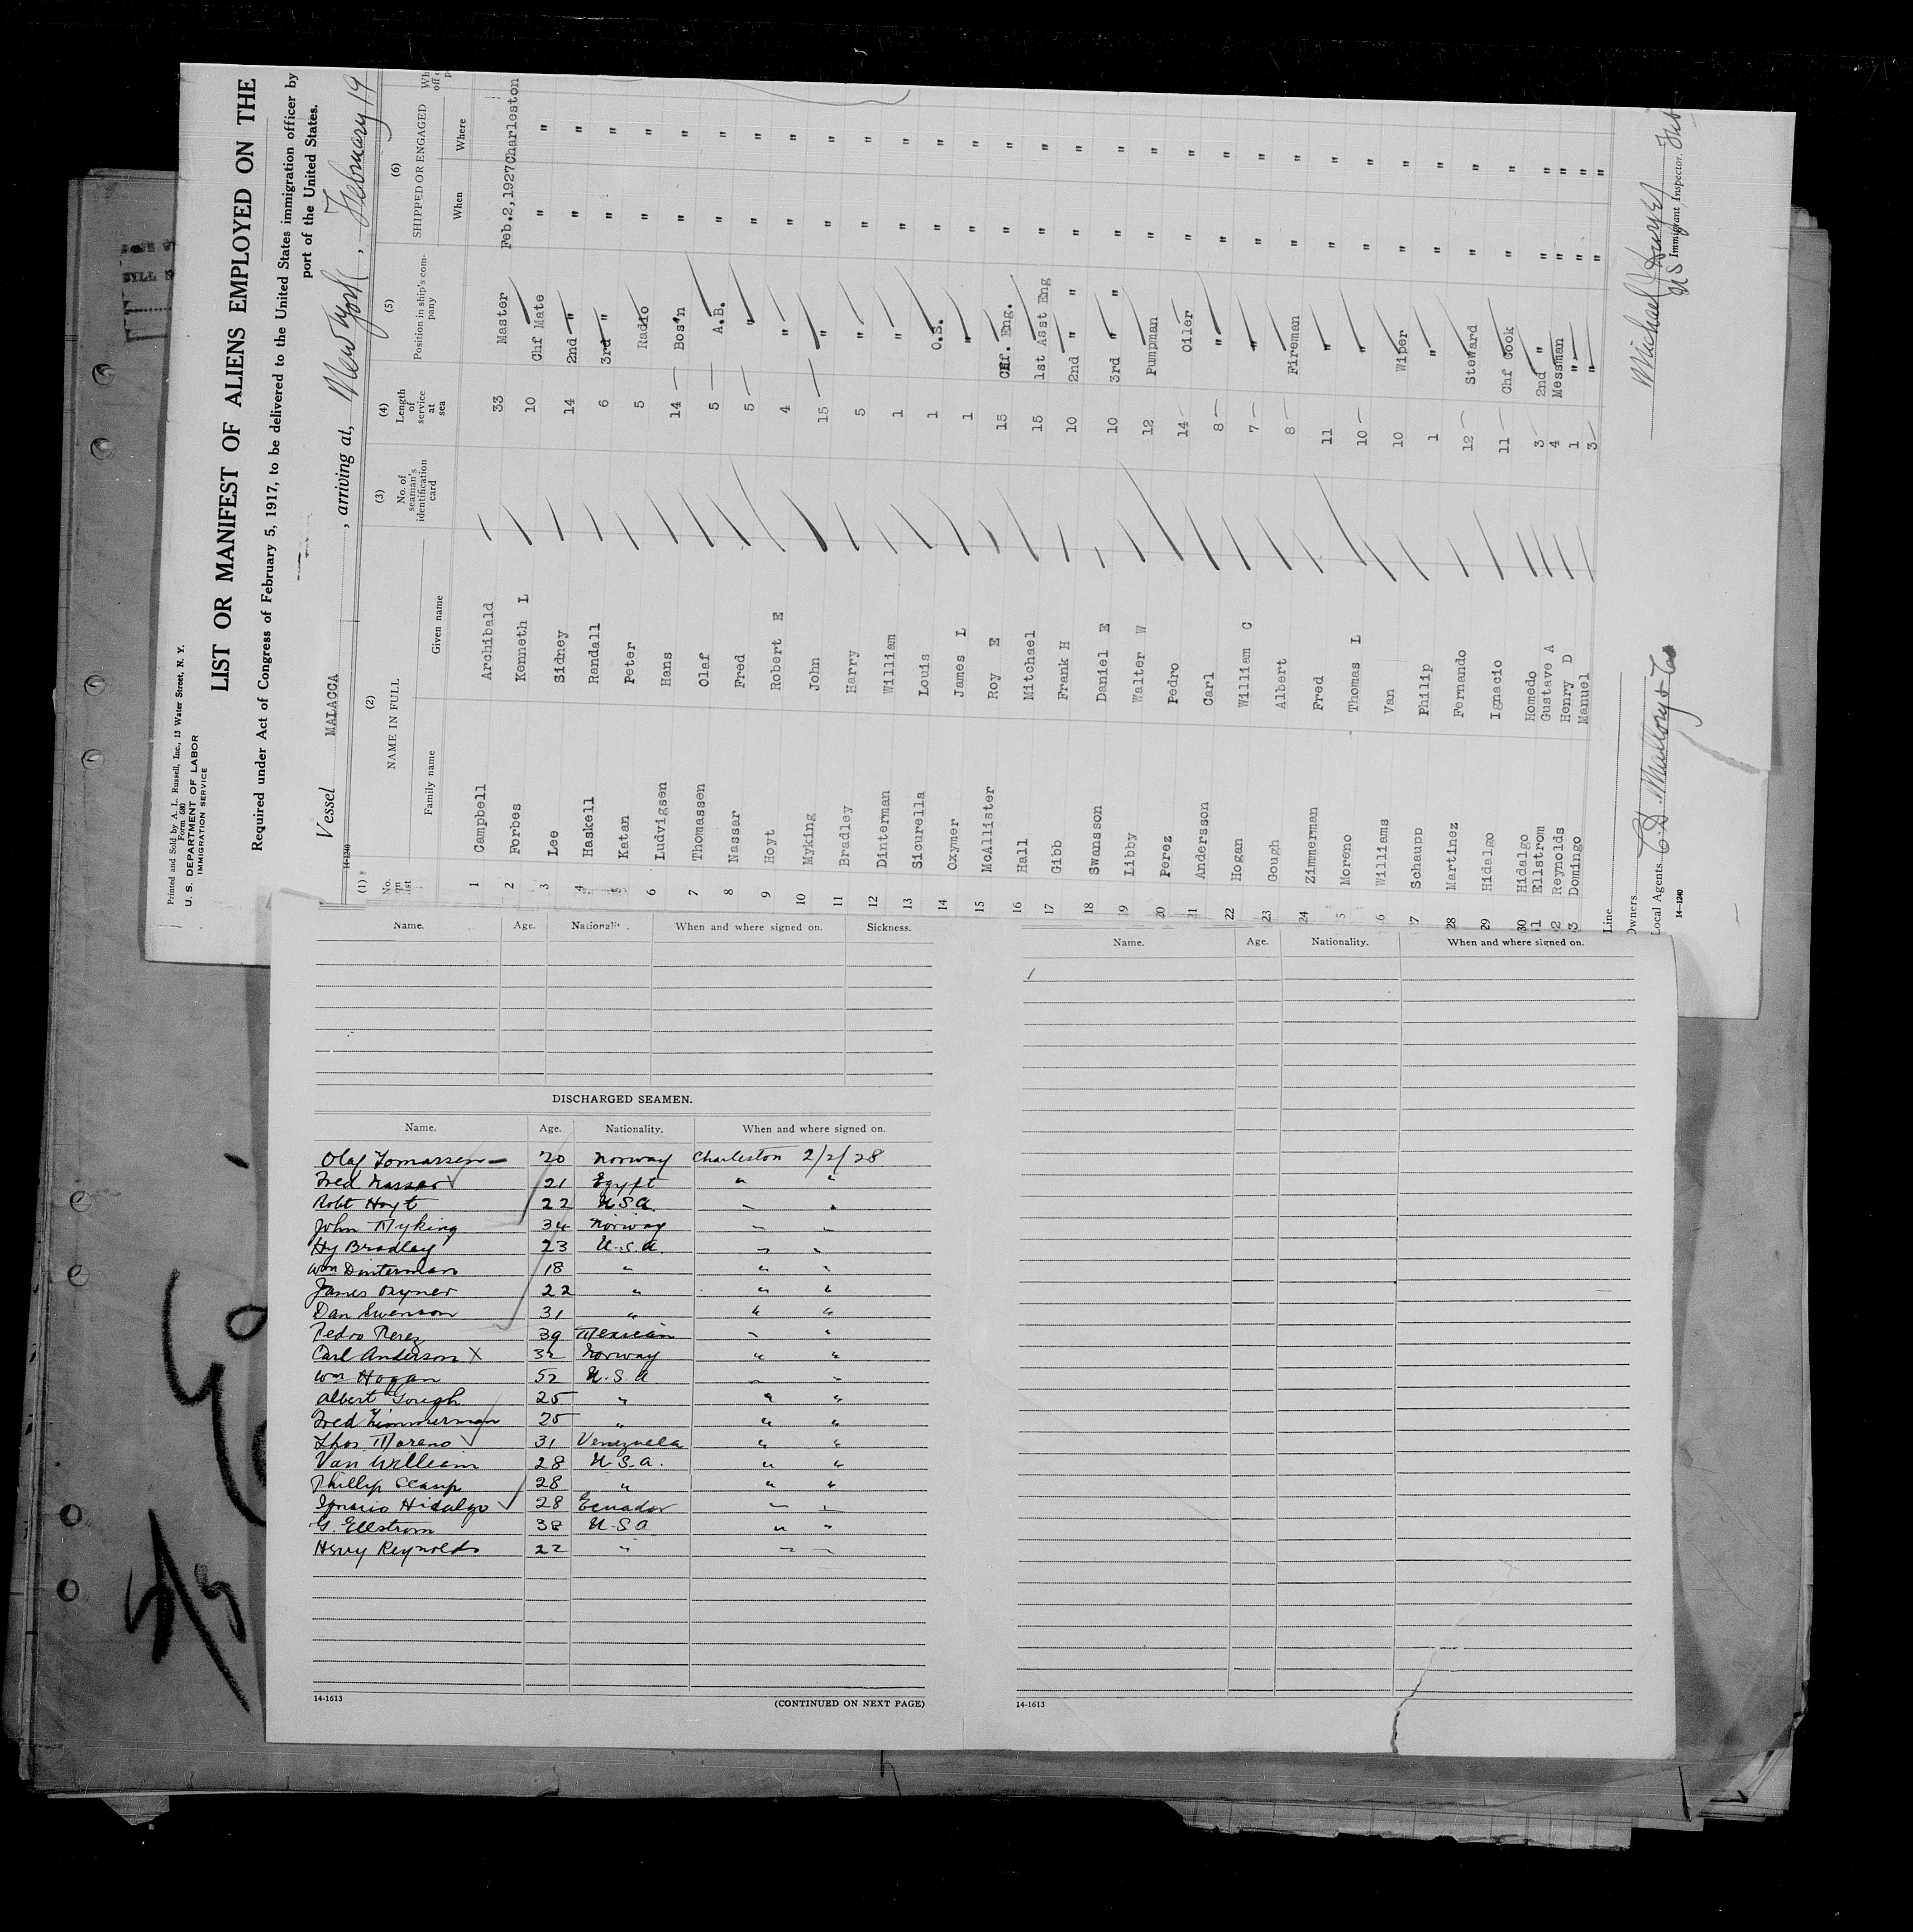 Printed and Sold by A. L. Russell, Inc., 13 Water Street, N. Y.
Form 680
U. S. DEPARTMENT OF LABOR
IMMIGRATION SERVICE
LIST OR MANIFEST OF ALIENS EMPLOYED ON THE
Required under Act of Congress of February 5, 1917, to be delivered to the United States immigration officer by
port of the United States.
Vessel MALACCA , arriving at, New York , February 19
14-1240
(1) (2) (3) (4) (5) (6)
No. on list NAME IN FULL No. of seaman's identification card Length of service at sea Position in ship's company SHIPPED OR ENGAGED
Family name Given name When Where
1 Campbell Archibald 33 Master Feb.2,1927 Charleston
2 Forbes Kenneth L 10 Chf Mate " "
3 Lee Sidney 14 2nd " " "
4 Haskell Randall 6 3rd " " "
5 Katan Peter 5 Radio " "
6 Ludvigsen Hans 14 Bos'n " "
7 Thomassen Olaf 5 A.B. " "
8 Nassar Fred 5 " " "
9 Hoyt Robert E 4 " " "
10 Myking John 15 " " "
11 Bradley Harry 5 " " "
12 Dinterman William 1 " " "
13 Sicurella Louis 1 O.S. " "
14 Oxyner James L 1 " " "
15 McAllister Roy E 15 Chf. Eng. " "
16 Hall Mitchael 15 1st Asst Eng " "
17 Gibb Frank H 10 2nd " " " "
18 Swansson Daniel E 10 3rd " " " "
19 Libby Walter W 12 Pumpman " "
20 Perez Pedro 14 Oiler " "
21 Andersson Carl 8 " " "
22 Hogan William C 7 " " "
23 Gough Albert 8 Fireman " "
24 Zimmerman Fred 11 " " "
5 Moreno Thomas L 10 " " "
6 Williams Van 10 Wiper " "
27 Schaupp Philip 1 " " "
28 Martinez Fernando 12 Steward " "
29 Hidalgo Ignacio 11 Chf Cook " "
30 Hidalgo Homedo 3 2nd " " "
1 Ellstrom Gustave A 4 Messman " "
2 Reynolds Henry D 1 " " "
3 Domingo Manuel 3 " " "
Line
Owners
Local Agents C.D. Mallory & Co
14-1240
Michael J
US Immigrant Inspector.
Name. Age. Nationali When and where signed on. Sickness.
DISCHARGED SEAMEN.
Name. Age. Nationality. When and where signed on.
Olaf Tomassen 20 Norway Charleston 2/2/28
Fred Nassar 21 Egypt " "
Robt Hoyt 22 USA " "
John Myking 34 Norway " "
Hy Bradley 23 U.S.A. " "
Wm Dinterman 18 " " "
James Oxyner 22 " " "
Dan Swenson 31 " " "
Pedro Perez 39 Mexican " "
Carl Anderson X 32 Norway " "
Wm Hogan 52 U.S.A " "
Albert Gough 25 " " "
Fred Zimmerman 25 " " "
Thos Moreno 31 Venezuela " "
Van William 28 U.S.A. " "
Phillip Scaup 28 " " "
Ignacio Hidalgo 28 Ecuador " "
G. Ellstrom 38 U.S A " "
Henry Reynolds 22 " " "
14-1613 (CONTINUED ON NEXT PAGE)
Name. Age. Nationality. When and where signed on.
14-1613